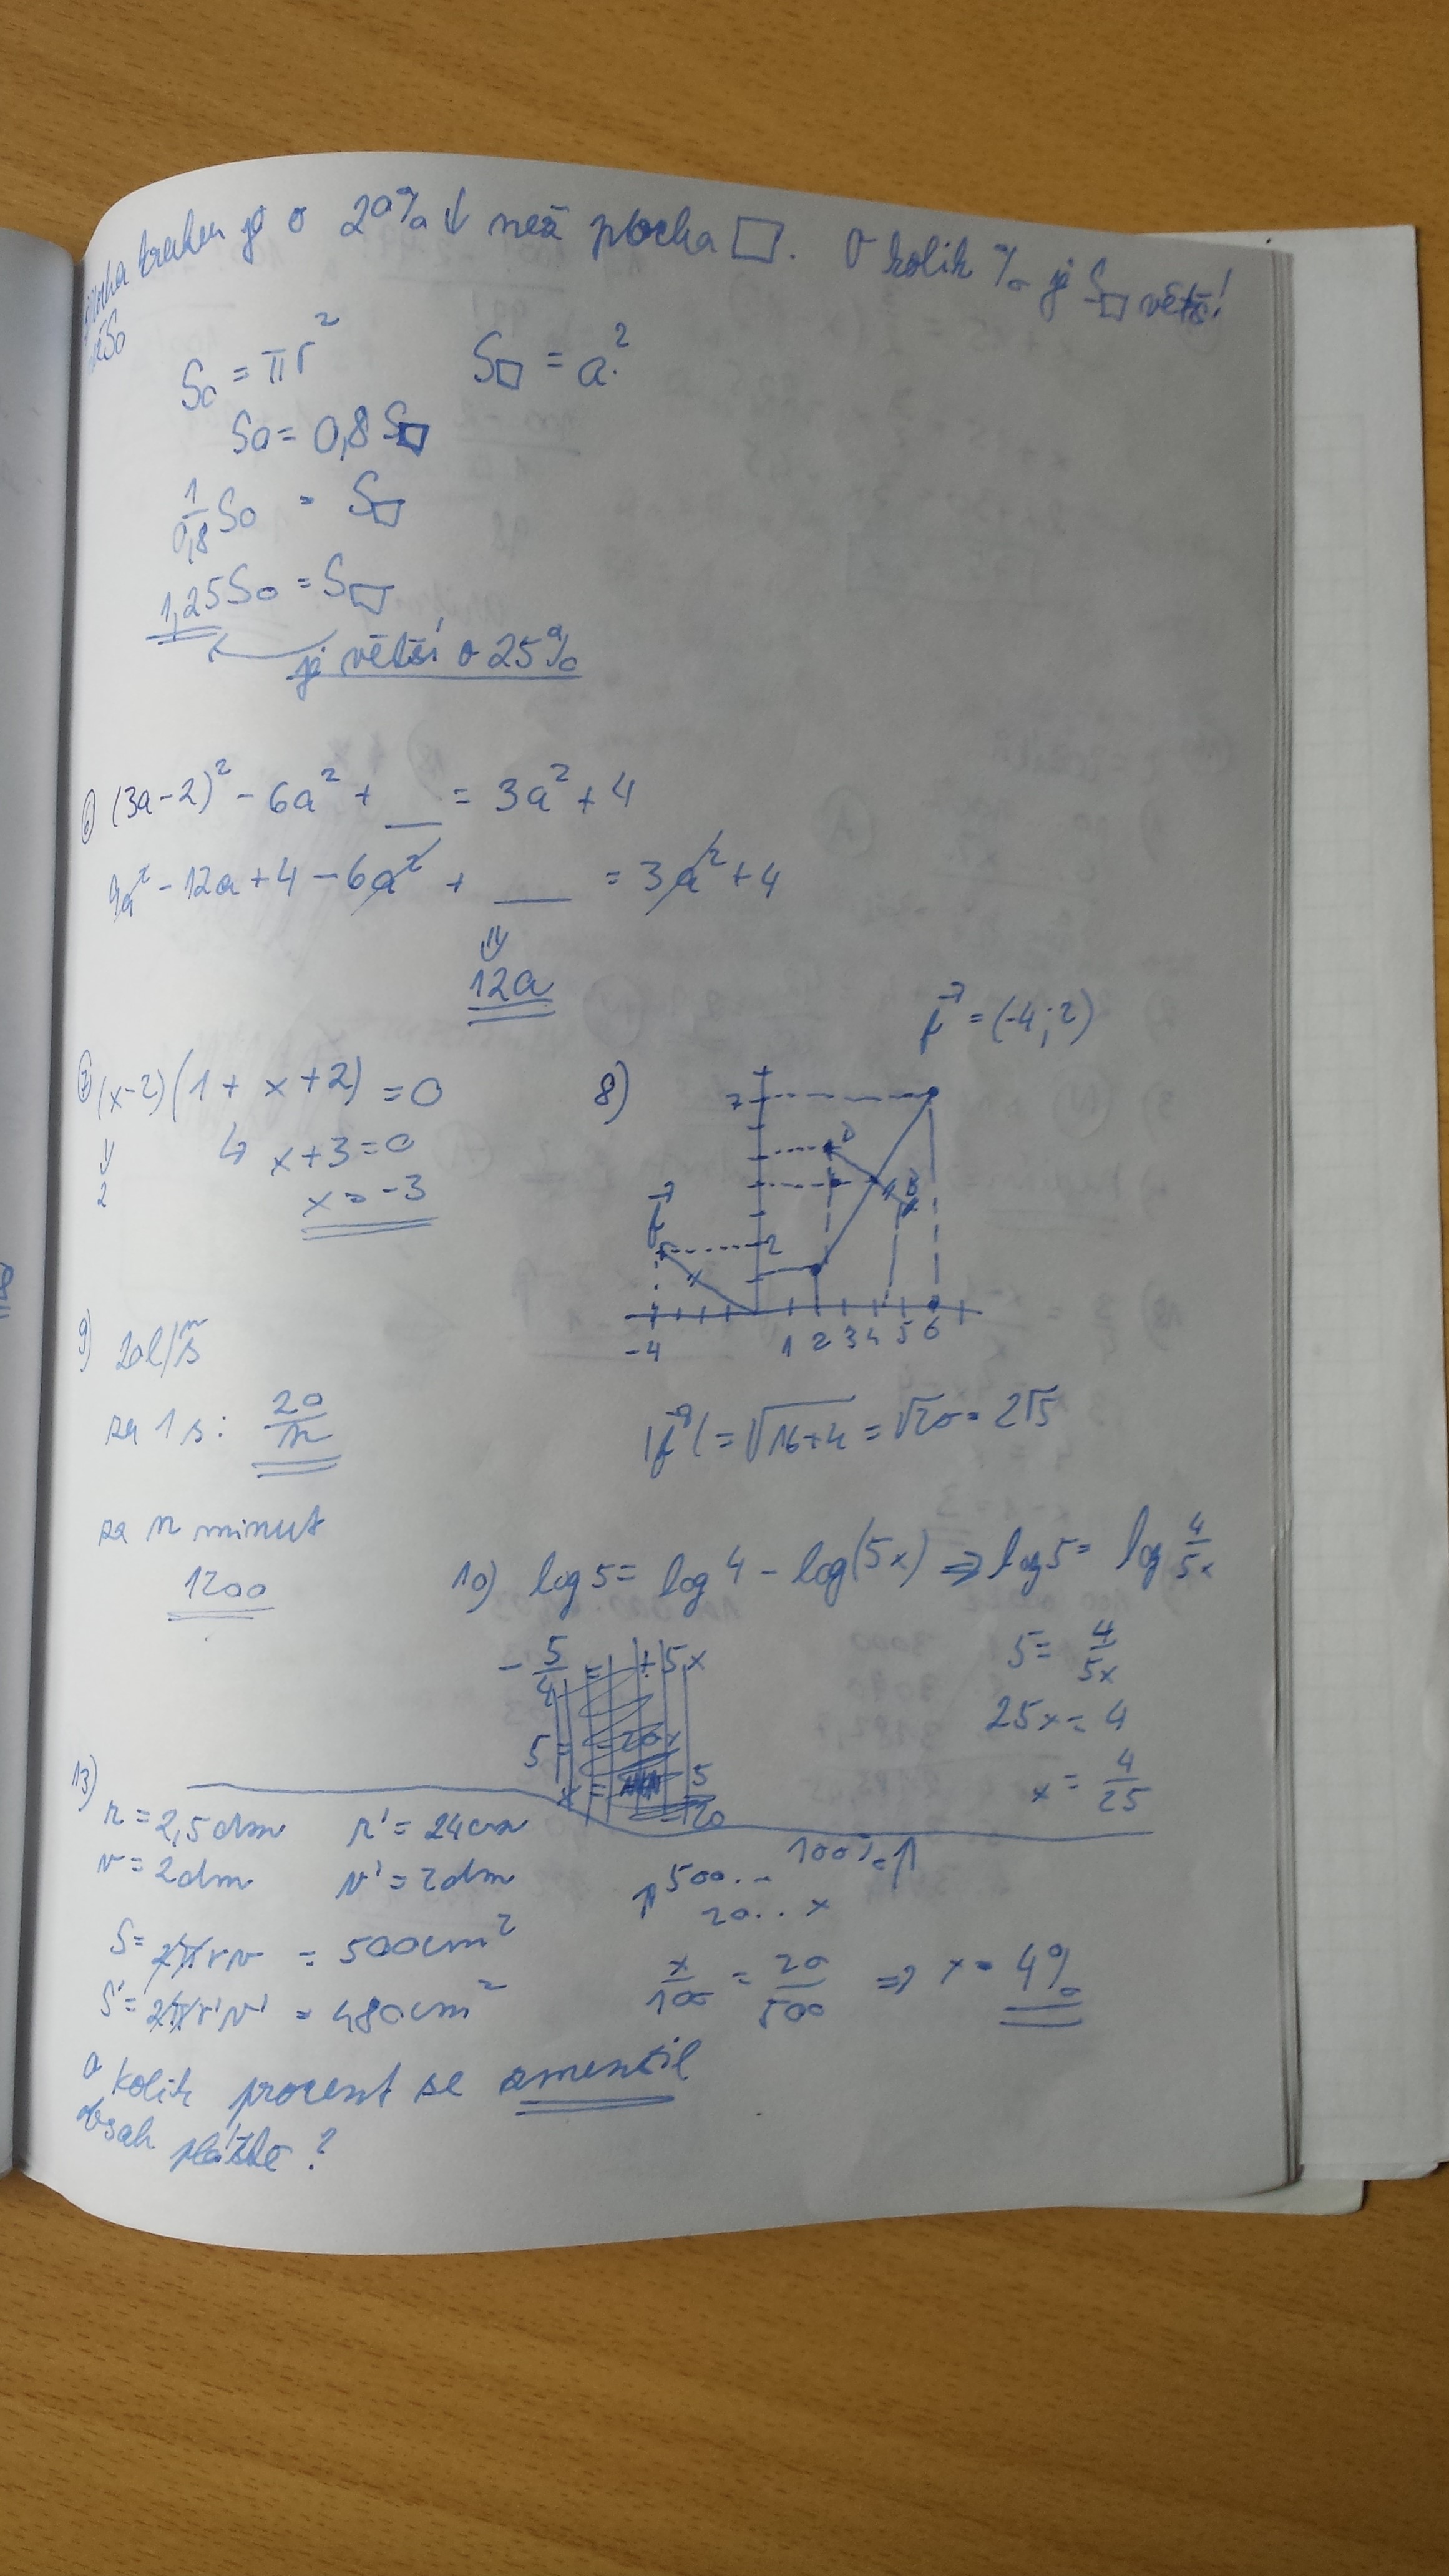 plocha kruhu je o 20% ↓ než plocha □. O kolik % je S□ větší
než So
So = πr² S□ = a²
So = 0,8 S□
1/0,8 So = S□
1,25 So = S□
je větší o 25%
6) (3a-2)² - 6a² + __ = 3a² + 4
9a² - 12a + 4 - 6a² + __ = 3a² + 4
⇓
12a
7) (x-2)(1 + x+2) = 0
↳ x+3=0
2
x = -3
8) f⃗ = (-4; 2)
7
D
B
f⃗
2
-4 1 2 3 4 5 6
|f⃗| = √16+4 = √20 = 2√5
9) 20l/n
za 1 s: 20/n
za n minut
1200
10) log 5 = log 4 - log(5x) ⇒ log 5 = log 4/5x
5 = 4/5x
25x = 4
x = 4/25
- 5/4 = + 5x
5 = 20x
x = 5/20
13)
r = 2,5dm r' = 24cm
v = 2dm v' = 2dm
S = 2πrv = 500cm²
S' = 2πr'v' = 480cm²
↑ 500... 100% ↑
20.. x
x/100 = 20/500 ⇒ x = 4%
o kolik procent se zmenšil
obsah pláště?